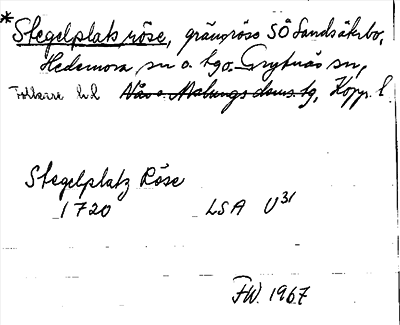 *Stegelplats röse, gränsröse SÖ Landsåkrbo,
Hedemora sn o. tgo. Grytnäs sn,
Folkare hd Näs o. Malungs doms. tg, Kopp. l
Stegelplatz Röse
1720 LSA U31
FW. 1967